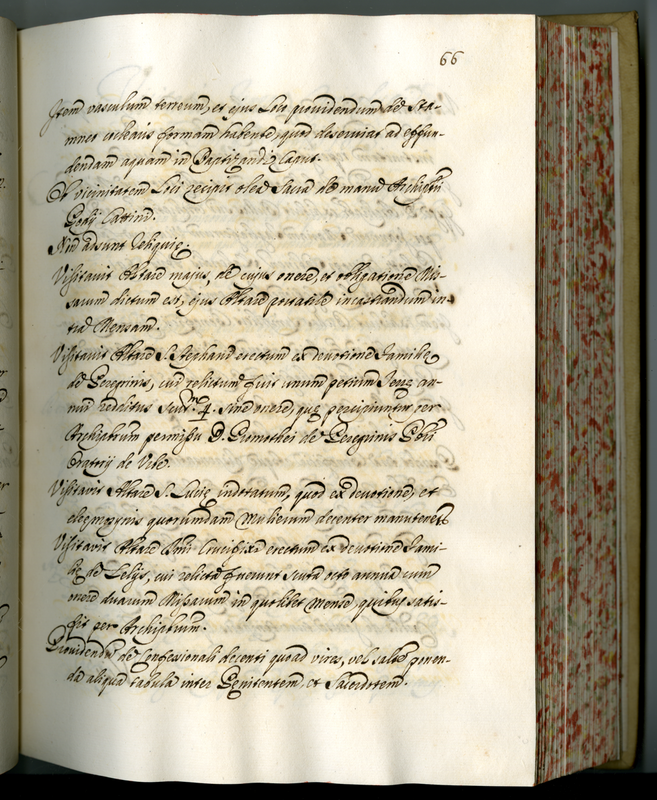 66
Item vasculum terreum, et ejus loco providendum de sta-
mneo cochearis formam habente, quod deserviat ad effun-
dendam aquam in Baptizandor. Caput.
Ob vicinitatem Loci recipit olea Sacra de manu Archipbri
Podij Cattini.
Non adsunt Reliquie.
Visitavit Altare majus, de cujus onere, et obligatione Mis-
sarum dictum est, ejus Altare portatile incastrandum in-
tra Mensam.
Visitavit Altare S. Stephani erectum ex devotione Familie
de Peregrinis, cui relictum fuit unum petium terre an-
nui redditus scutor. 4. sine onere, que percipiuntur per
Archiptrum permissu D. Promothei de Peregrinis
de
Visitavit Altare S. Lucie indotatum, quod ex devotione, et
eleemozynis quorumdam Mulierum decenter manutenet.
Visitavit Altare Smi Crucifixi erectum ex devotione Fami-
lie de Lelijs, cui relicta fuerunt scuta octo annua cum
onere duarum Missarum in quolibet Mense quibus satis-
fit per Archiptrum.
Providendum de Confessionali decenti quoad vires, vel saltem ponen-
da aliqua tabula inter Penitentem, et Sacerdotem.